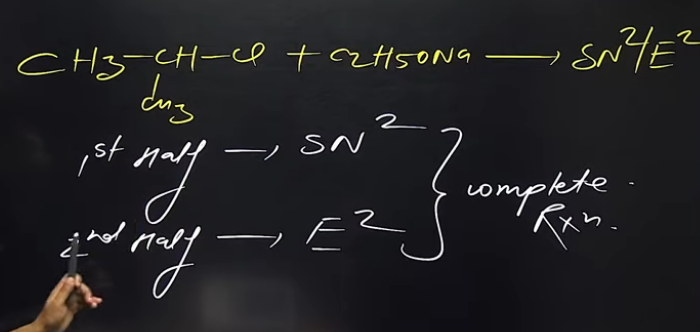 CH3-CH-Cl + C2H5ONa → SN2/E2
CH3
1st Half → SN2
2nd Half → E2
complete
Rxn.